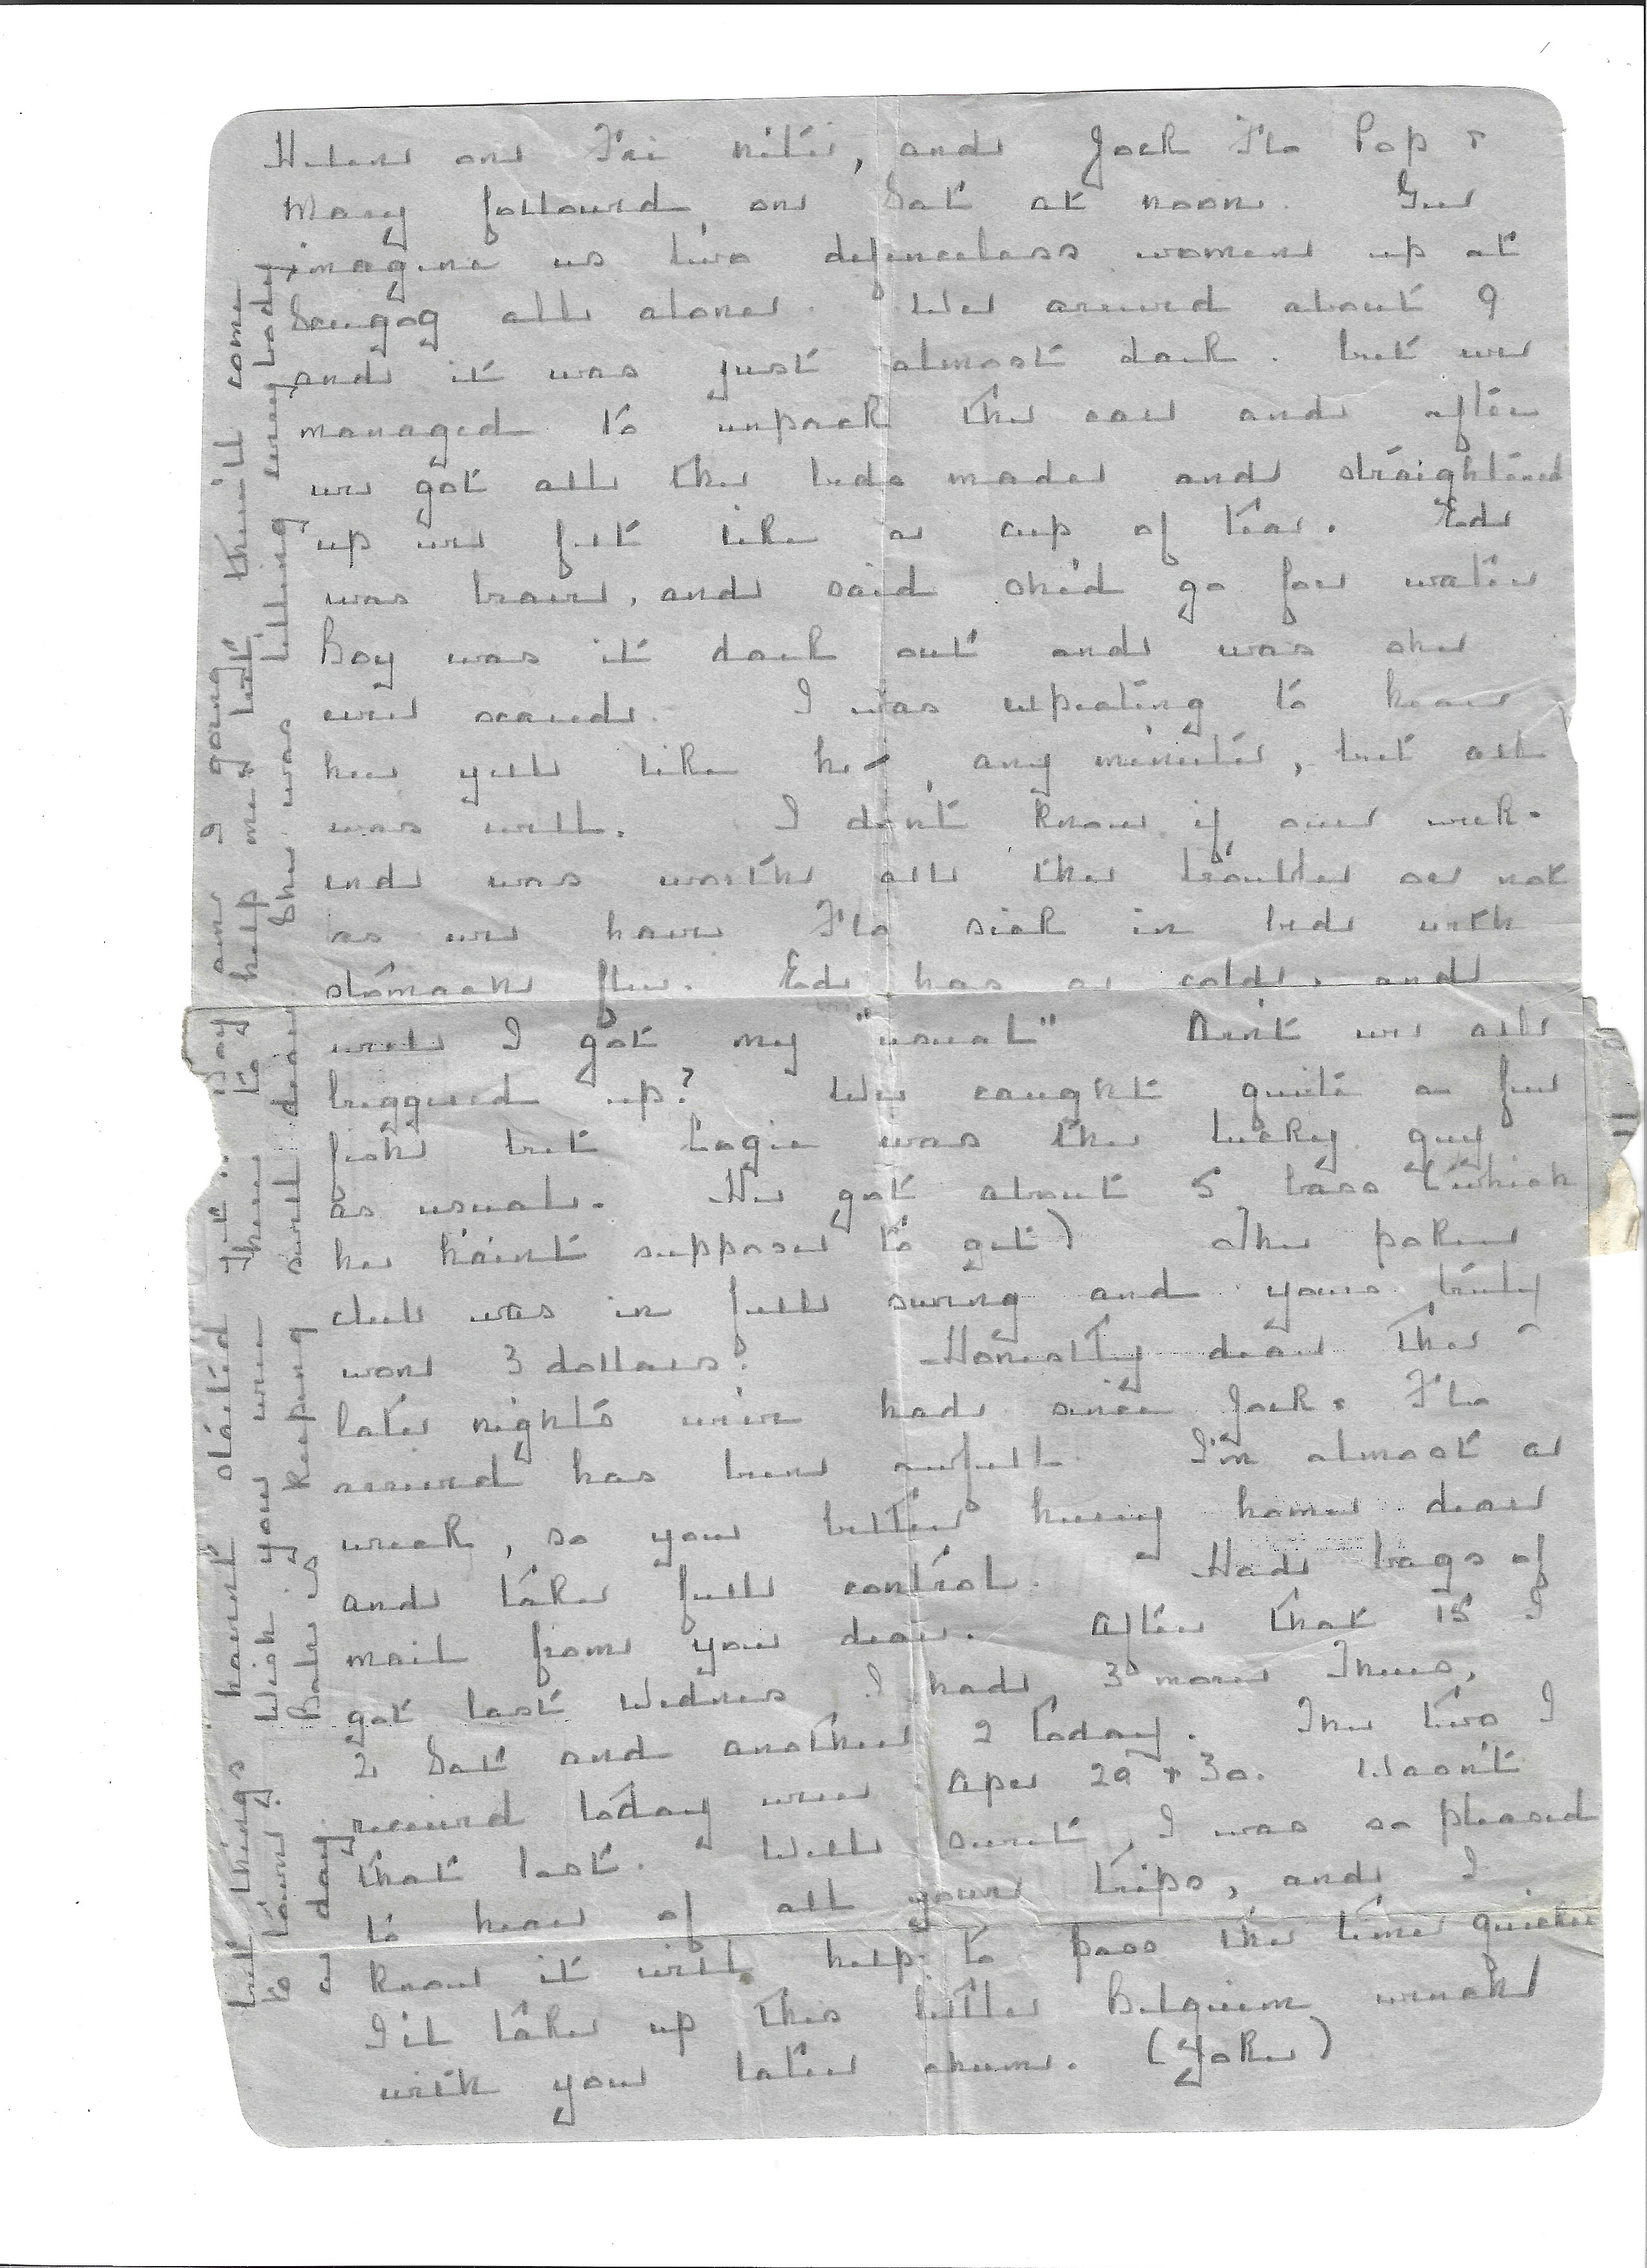 Helen on Fri nite, and Jack Flo Pop &
Mary followed on Sat at noon. Gee
imagine us two defenceless women up at
Scugog all alone. We arrived about 9
and it was just almost dark. but we
managed to unpack the car and after
we got all the beds made and straightened
up we felt like a cup of tea. Ed
was brave, and said she'd go for water
Boy was it dark out and was she
ever scared. I was expecting to hear
her yell like he- any minute, but all
was well. I don't know if our week-
end was worth all the trouble or not
as we have Flo sick in bed with
stomach flu. Ed has a cold, and
well I got my "usual" Aint we all
buggered up? We caught quite a few
fish but Logie was the lucky guy
as usual. He got about 5 bass (which
he haint suppose to get) The poker
club was in full swing and yours truly
won 3 dollars. Honestly dear the
late nights we've had since Jack & Flo
arrived has been awfull. I'm almost a
wreck, so you better hurry home dear
and take full control. Had bags of
mail from you dear. After that 15 I
got last Wednes I had 3 more Thurs,
2 Sat and another 2 today. The two I
received today were Apr 29 + 30. Wasn't
that fast. Well sweet, I was so pleased
to hear of all your trips, and I
know it will help to pass the time quicker
I'll take up this little Belguim wench
with you later chum. (Joke)
but things havent started yet. Boy am I going they'll come
to town. Wish you were there to help me but
Babe is keeping swell dear She was letting everybody
a day